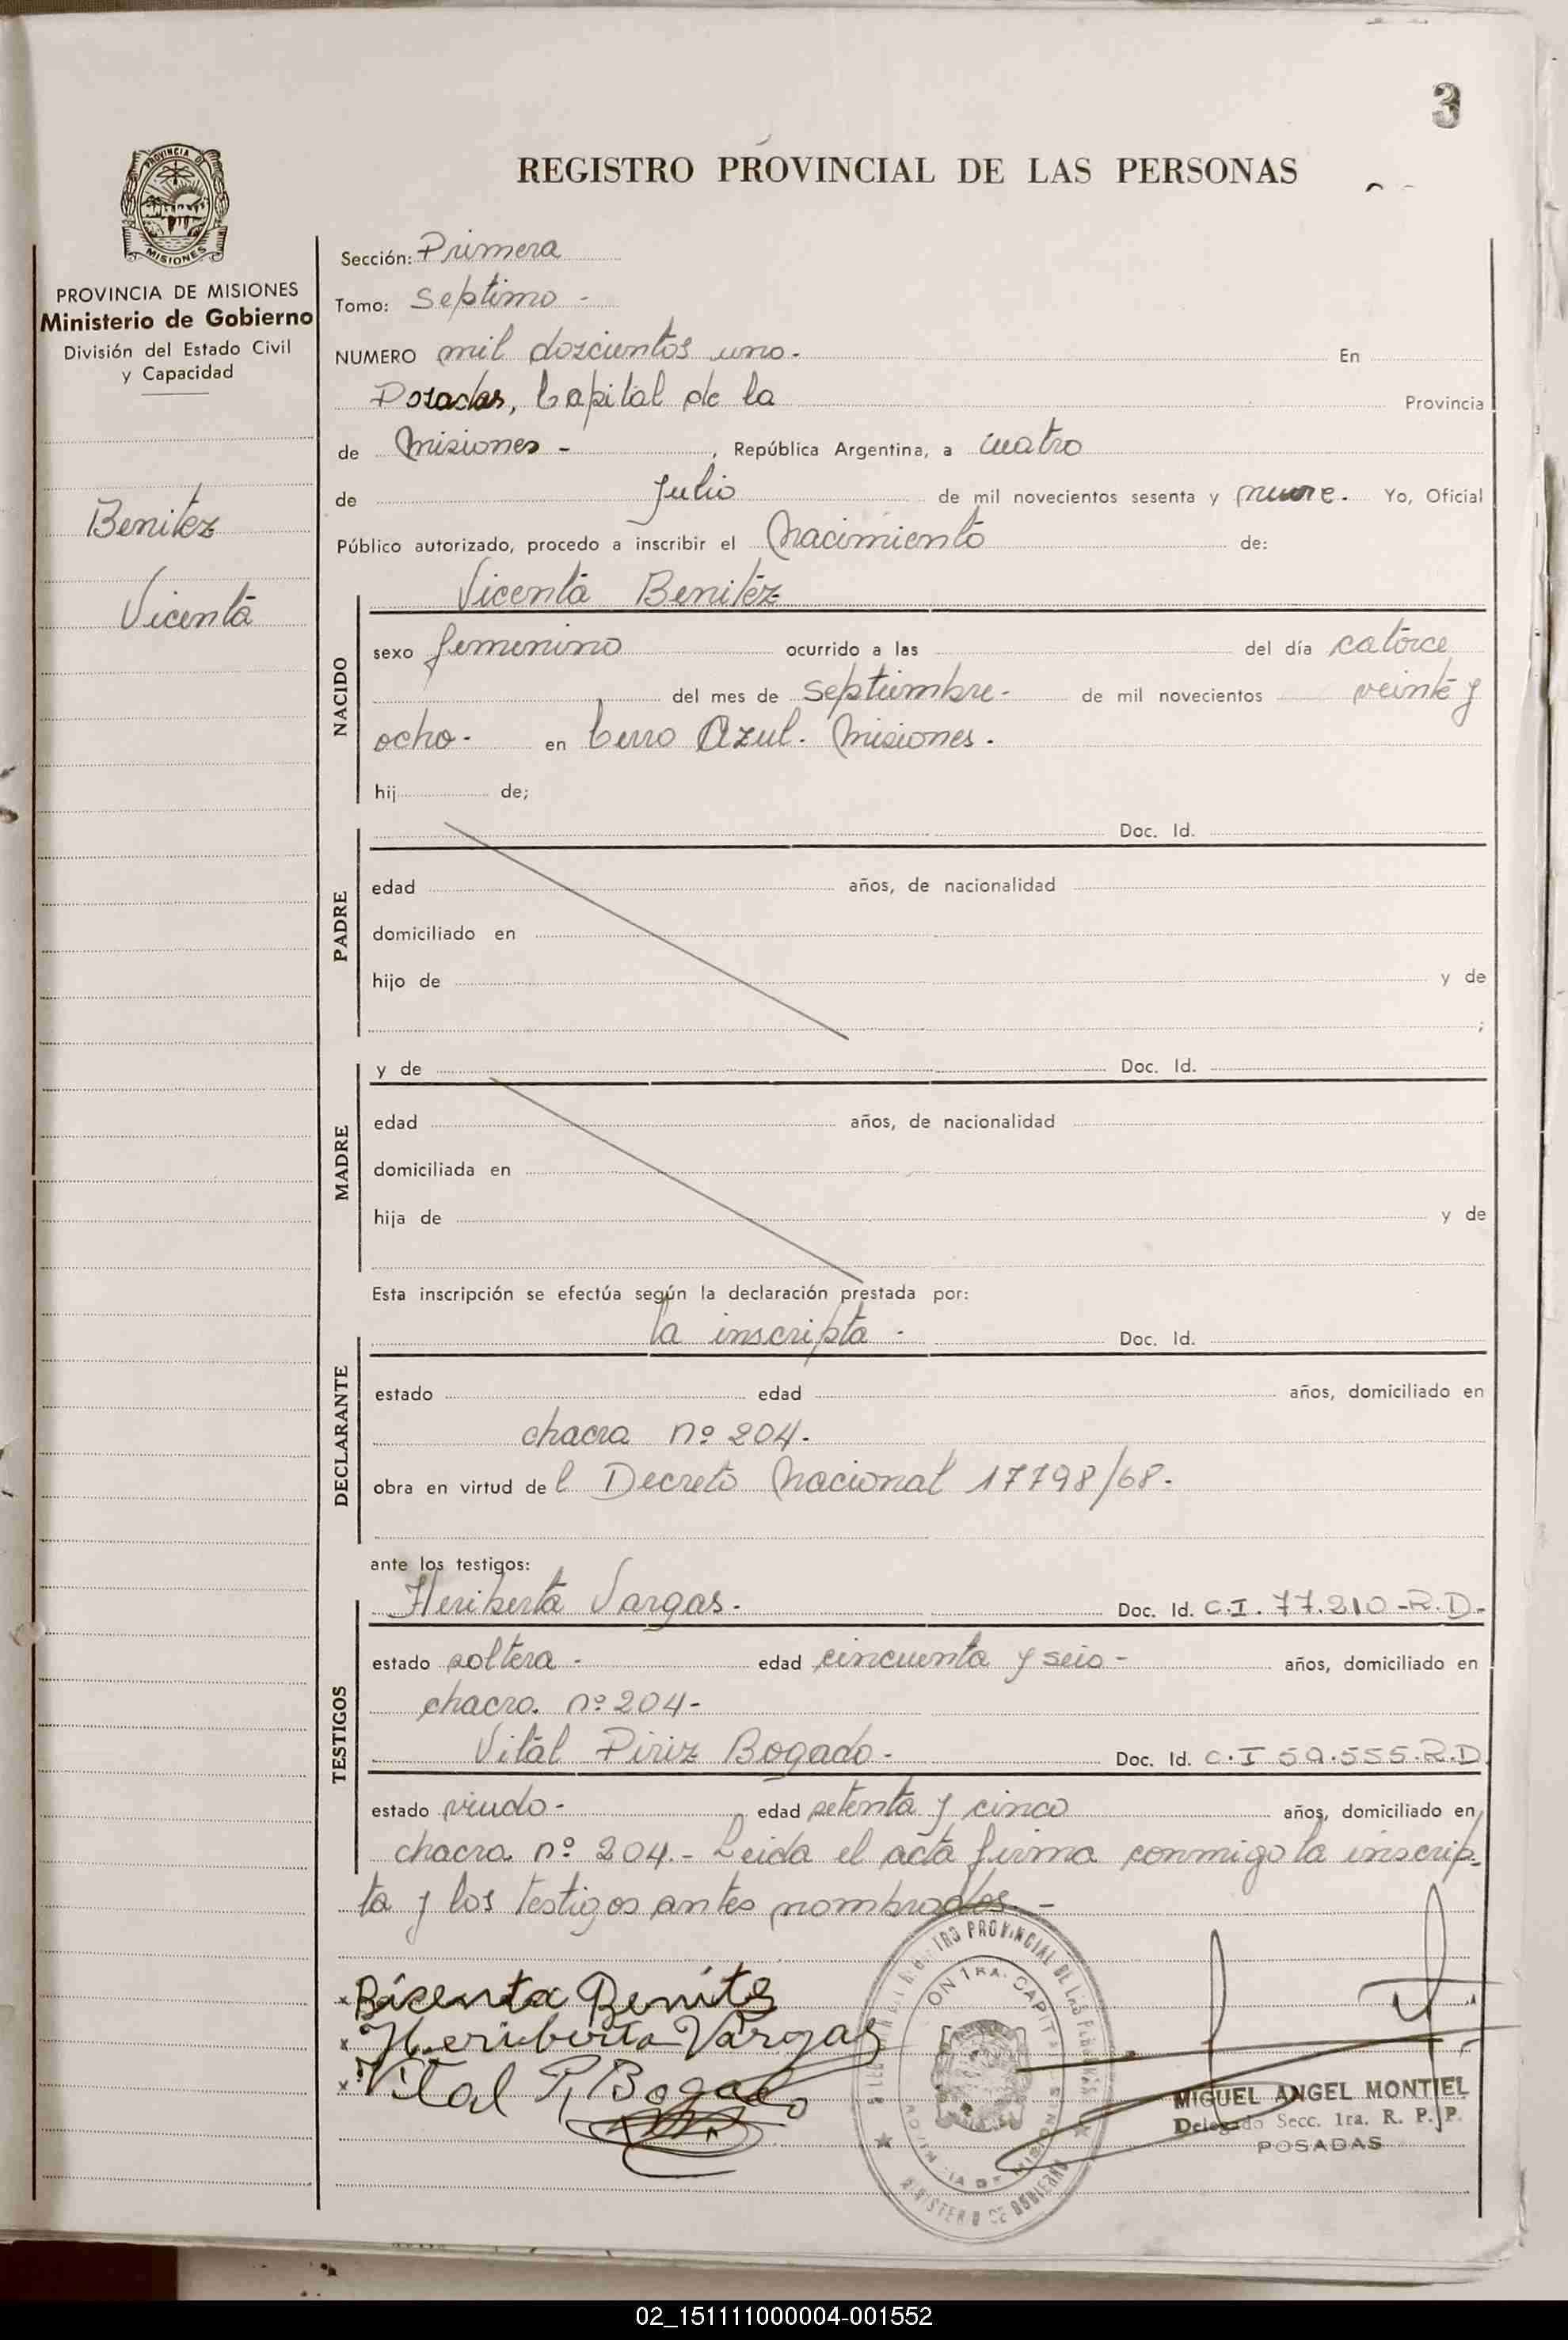 3
REGISTRO PROVINCIAL DE LAS PERSONAS
PROVINCIA DE
MISIONES
PROVINCIA DE MISIONES
Ministerio de Gobierno
División del Estado Civil
y Capacidad
Benitez
Vicenta
Sección: Primera
Tomo: Septimo -
NUMERO mil doscientos uno. En
Posadas, Capital de la Provincia
de Misiones - , República Argentina, a cuatro
de Julio de mil novecientos sesenta y nueve. Yo, Oficial
Público autorizado, procedo a inscribir el Nacimiento de:
Vicenta Benitez
NACIDO
sexo femenino ocurrido a las del día catorce
del mes de septiembre - de mil novecientos veinte y
ocho - en Cerro Azul. Misiones.
hij de;
Doc. Id.
PADRE
edad años, de nacionalidad
domiciliado en
hijo de y de
;
y de Doc. Id.
MADRE
edad años, de nacionalidad
domiciliada en
hija de y de
Esta inscripción se efectúa según la declaración prestada por:
la inscripta - Doc. Id.
DECLARANTE
estado edad años, domiciliado en
chacra nº 204.
obra en virtud de l Decreto Nacional 17798/68.
ante los testigos:
Heriberta Vargas. Doc. Id. C.I. 77.210 -R.D-
TESTIGOS
estado soltera - edad cincuenta y seis - años, domiciliado en
chacra nº 204-
Vital Piriz Bogado - Doc. Id. C.I 59.555.R.D
estado viudo - edad setenta y cinco años, domiciliado en
chacra nº 204.- Leida el acta firma conmigo la inscrip-
ta y los testigos antes nombrados. -
x Bicenta Benitez
x Heriberta Vargas
x Vital P, Bogado
PROVINCIAL DE LAS
1RA. CAPIT
MINISTERIO DE GOBIERNO
MIGUEL ANGEL MONTIEL
Delegado Secc. 1ra. R. P. P.
POSADAS
02_151111000004-001552